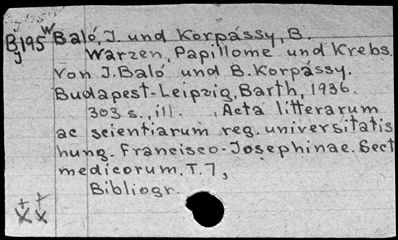 B195w Baló, J. und Korpássy, B.
y Warzen, Papillome und Krebs.
Von J. Baló und B. Korpássy.
Budapest-Leipzig, Barth, 1936.
303 s., ill. Acta litterarum
ac scientiarum reg. universitatis
hung. Francisco-Josephinae. Sect.
medicorum. T. 7,
Bibliogr.